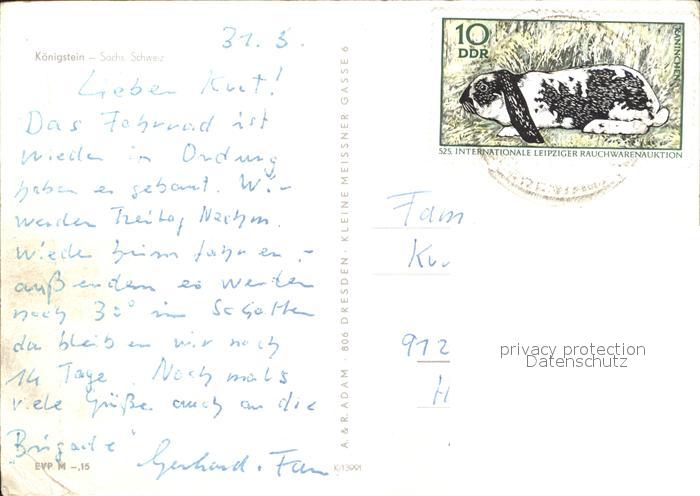 31. 5.
Königstein – Sächs. Schweiz
Lieber Kurt!
Das Fahrrad ist
wieder in Ordnung
haben es gebaut. Wir
werden Freitag Nachm.
wieder heim fahren,-
außerdem es werden
noch 30° im Schatten
da bleiben wir noch
14 Tage. Nochmals
viele Grüße auch an die
"Brigade"
Gerhard + Fam
EVP M –,15
K/13991
A. & R. ADAM · 806 DRESDEN · KLEINE MEISSNER GASSE 6
10
DDR
KANINCHEN
525. INTERNATIONALE LEIPZIGER RAUCHWARENAUKTION
Fam
Ku
912
H
privacy protection
Datenschutz